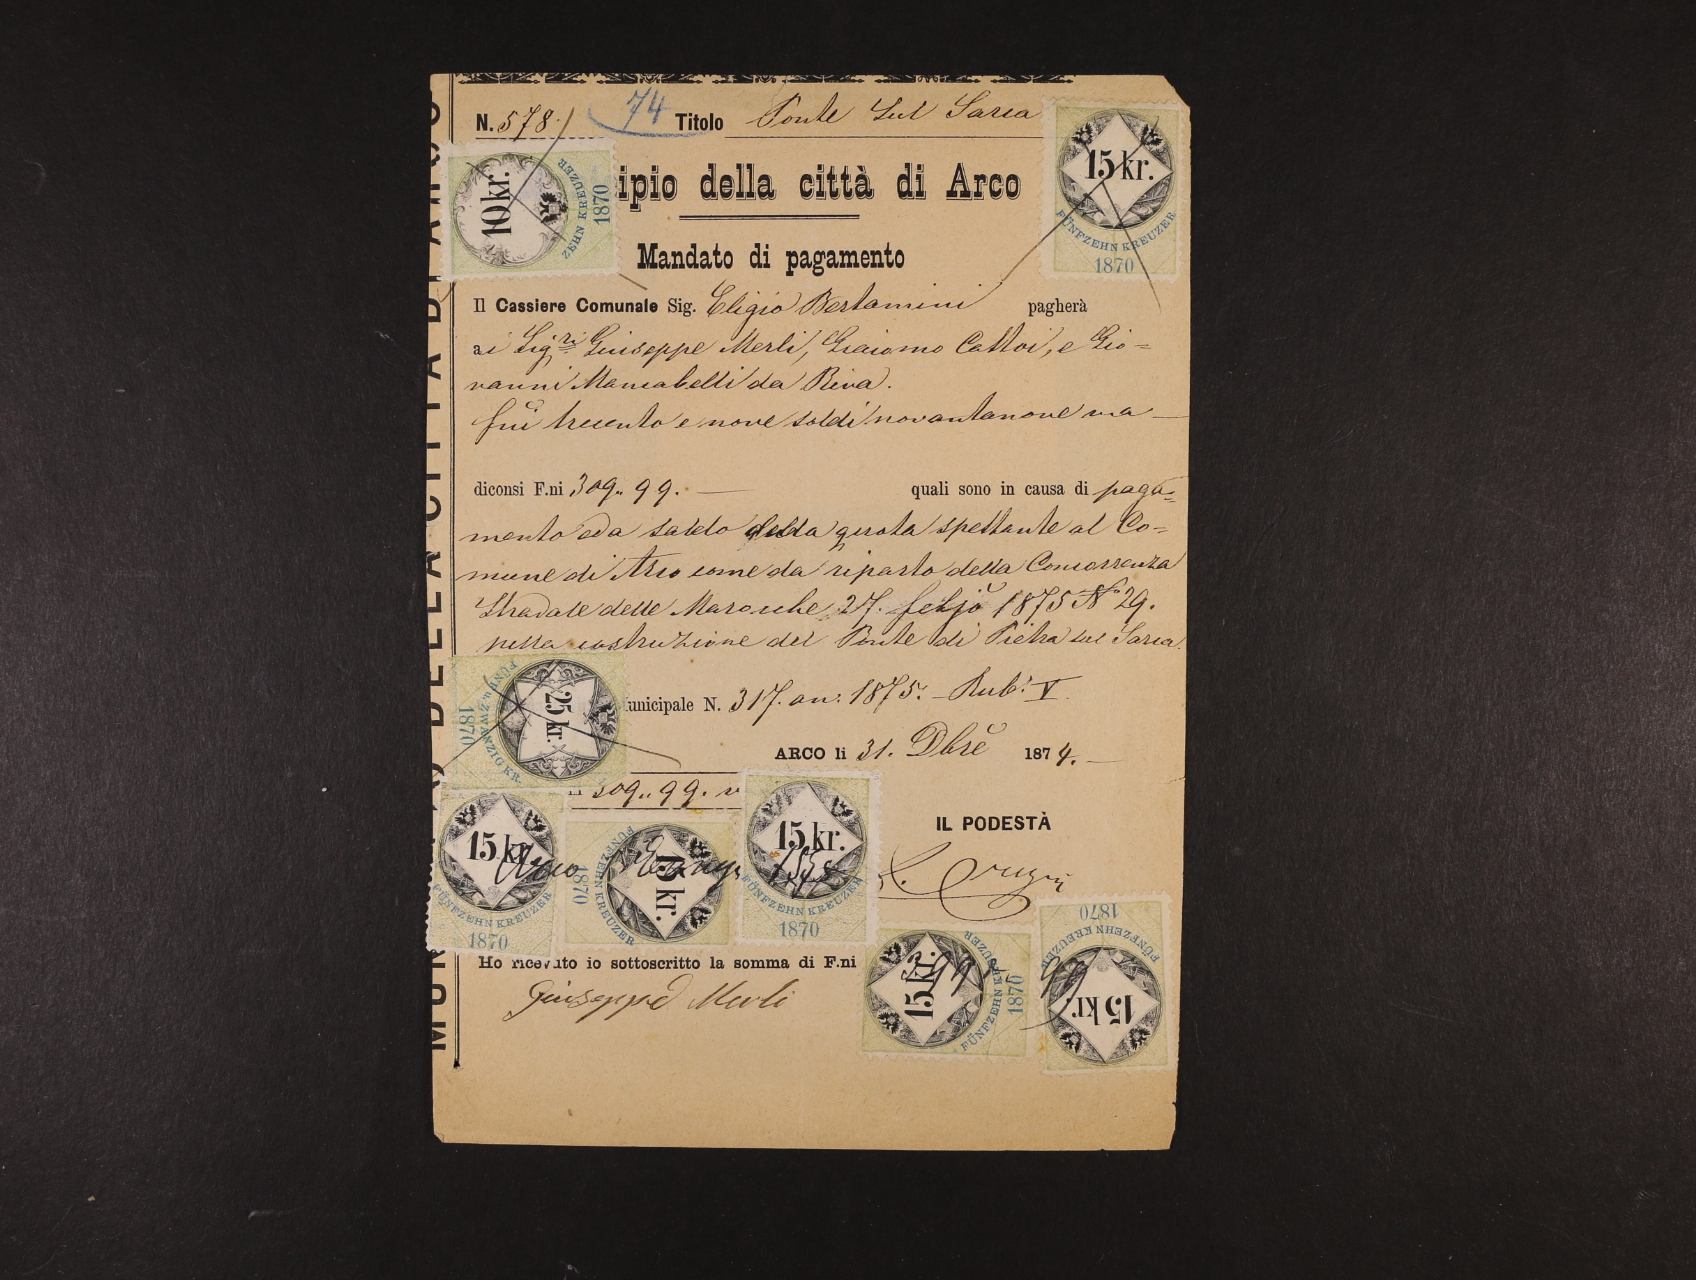 N. 578. 74 Titolo Ponte sul Sarca
ipio della città di Arco
Mandato di pagamento
Il Cassiere Comunale Sig. Eligio Bertamini pagherà
ai Sigri Giuseppe Merli, Giacomo Cattoi, e Gio=
vanni Mancabelli da Riva.
fni trecento e nove soldi novantanove va
diconsi F.ni 309.. 99. — quali sono in causa di paga=
mento ed a saldo della quota spettante al Co=
mune di Arco come da riparto della Concorrenza
Stradale delle Marocche 27. 1875 No 29.
nella costruzione del Ponte di Pietra sul Sarca.
unicipale N. 317. an: 1875. - Rub: V.
ARCO li 31. Dbre 1874. —
309.. 99. v
IL PODESTÀ
Arco 1875
Ho ricevuto io sottoscritto la somma di F.ni
Giuseppe Merli
MUN DELLA CITTÀ DI ARCO
10 kr.
ZEHN KREUZER
1870
15 kr.
FÜNFZEHN KREUZER
1870
25 kr.
FÜNF u. ZWANZIG KR.
1870
15 kr.
FÜNFZEHN KREUZER
1870
15 kr.
FÜNFZEHN KREUZER
1870
15 kr.
FÜNFZEHN KREUZER
1870
15 kr.
FÜNFZEHN KREUZER
1870
15 kr.
FÜNFZEHN KREUZER
1870